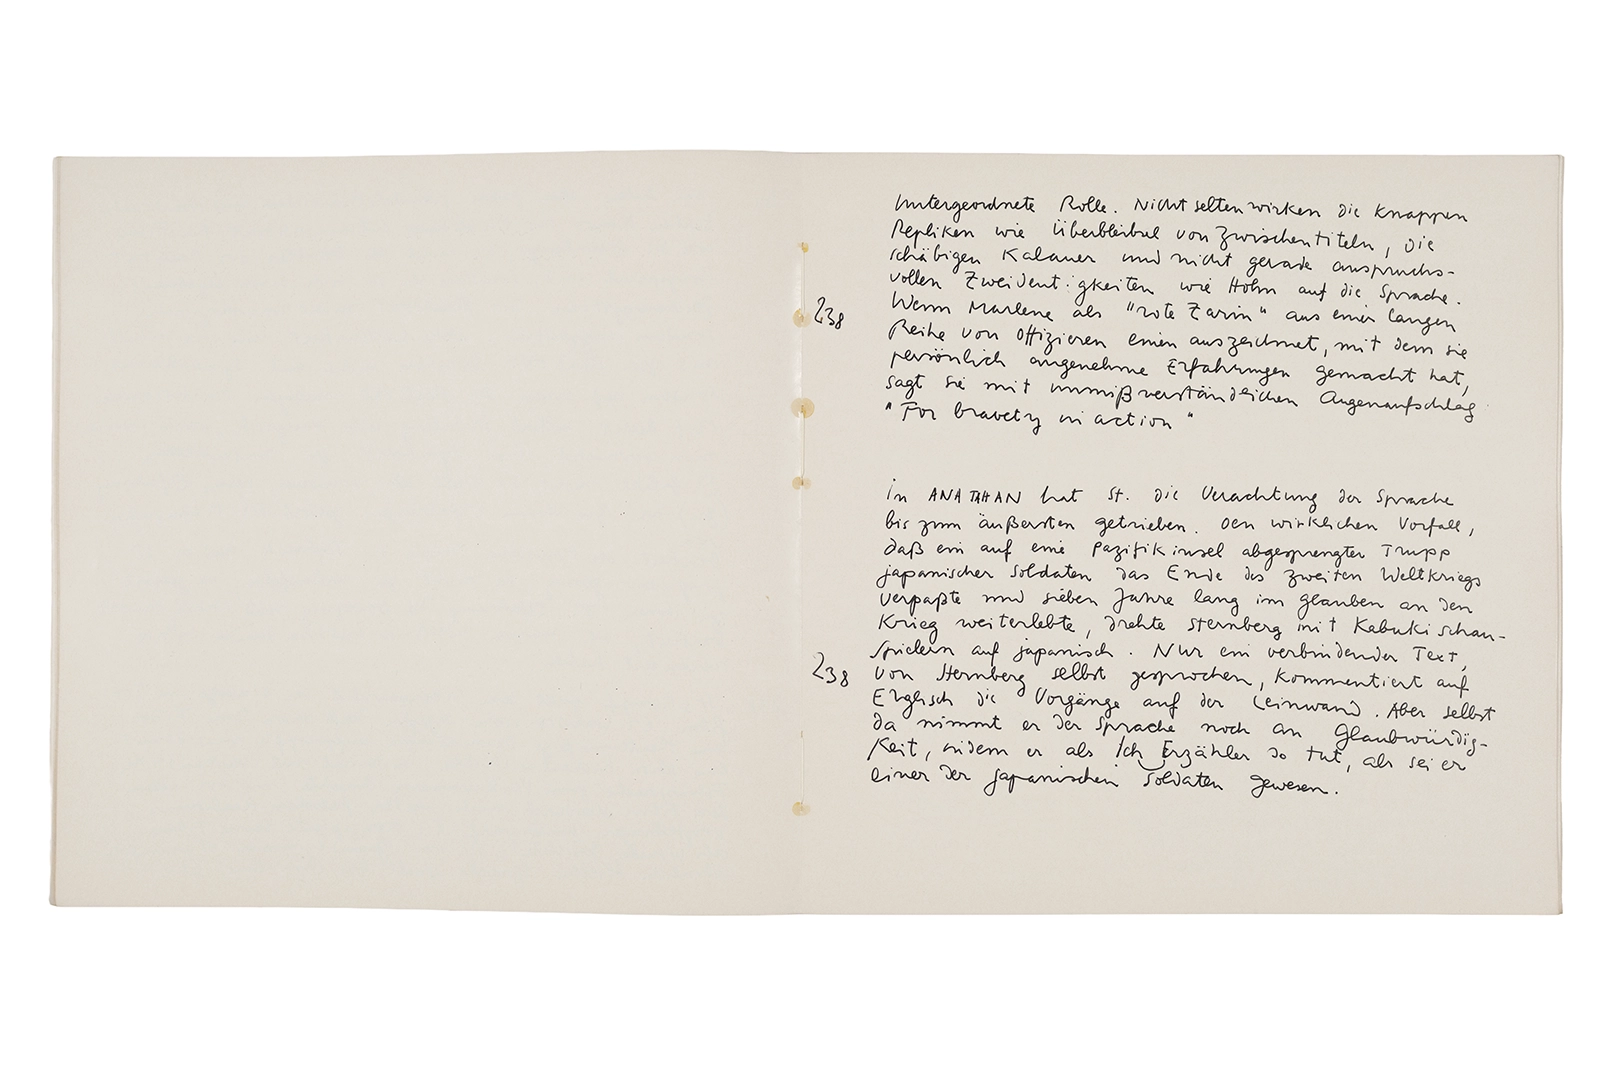 untergeordnete Rolle. Nicht selten wirken die knappen
Repliken wie Überbleibsel von Zwischentiteln, die
schäbigen Kalauer und nicht gerade anspruchs-
vollen Zweideutigkeiten wie Hohn auf die Sprache.
238 Wenn Marlene als "rote Zarin" aus einer langen
Reihe von Offizieren einen auszeichnet, mit dem sie
persönlich angenehme Erfahrungen gemacht hat,
sagt sie mit unmißverständlichen Augenaufschlag
"For bravety in action"
in ANATAHAN hat St. die Verachtung der Sprache
bis zum äußersten getrieben. Den wirklichen Vorfall,
daß ein auf eine Pazifikinsel abgesprengter Trupp
japanischer Soldaten das Ende des zweiten Weltkriegs
verpaßte und sieben Jahre lang im Glauben an den
Krieg weiterlebte, drehte Sternberg mit Kabuki schau-
spielern auf japanisch. Nur ein verbindender Text,
238 von Sternberg selbst gesprochen, kommentiert auf
Englisch die Vorgänge auf der Leinwand. Aber selbst
da nimmt er der Sprache noch an Glaubwürdig-
keit, indem er als Ich Erzähler so tut, als sei er
einer der japanischen Soldaten gewesen.